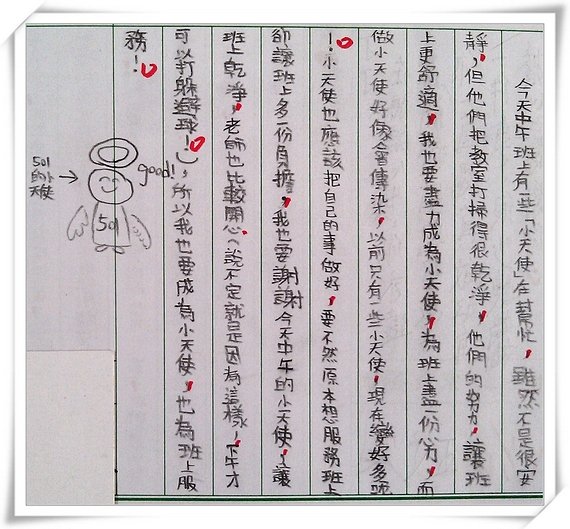 今天中午班上有一些「小天使」在幫忙，雖然不是很安
靜，但他們把教室打掃得很乾淨，他們的努力，讓班
上更舒適，我也要盡力成為小天使，為班上盡一份心力，而
做小天使好像會傳染，以前只有一些小天使，現在變好多
！小天使也應該把自己的事做好，要不然原本想服務班上
卻讓班上多一份負擔，我也要謝謝今天中午的小天使，讓
班上乾淨，老師也比較開心（說不定就是因為這樣，下午才
可以打躲避球！），所以我也要成為小天使，也為班上服
務！
good!
501的小天使
501